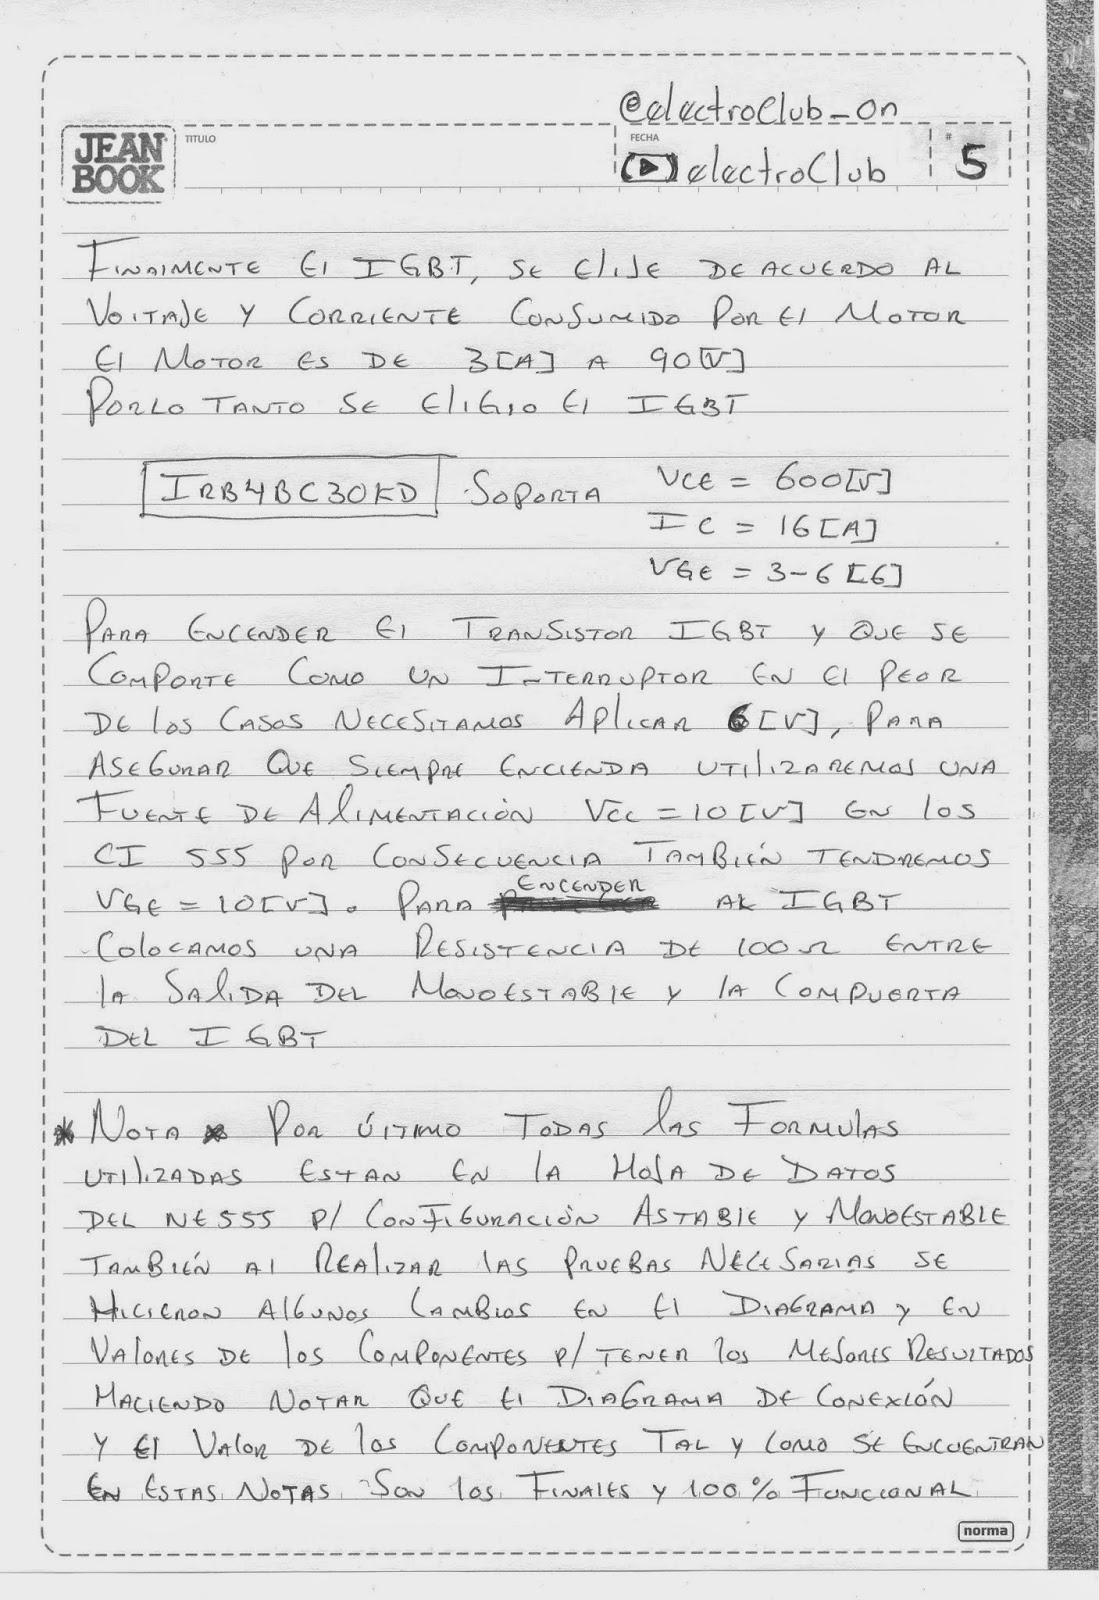 @electroClub_on
JEAN BOOK
TITULO
FECHA
electroClub
# 5
FINAlMENTE El IGBT, SE ElIJE DE ACUERDO AL
VOlTAJE Y CORRIENTE CONSUMIDO POR El MOTOR
El MOTOR ES DE 3[A] A 90[V]
PORLO TANTO SE ElIGIO El IGBT
IRB4BC30KD SOPORTA VCE = 600[V]
IC = 16[A]
VGE = 3-6[6]
PARA ENCENDER El TRANSISTOR IGBT Y QUE SE
COMPORTE COMO UN INTERRUPTOR EN El PEOR
DE los CASOS NECESITAMOS APlICAR 6[V], PARA
ASEGURAR QUE SIEMPRE ENCIENDA UTIlIZAREMOS UNA
FUENTE DE AlIMENTACIÓN VCC = 10[V] EN los
CI 555 POR CONSECUENCIA TAMBIÉN TENDREMOS
VGE = 10[V]. PARA ENCENDER AL IGBT
COlOCAMOS UNA RESISTENCIA DE 100Ω ENTRE
lA SAlIDA DEL MONOESTABlE y lA COMPUERTA
DEL IGBT
* NOTA * POR ÚlTIMO TODAS lAS FORMUlAS
UTIlIZADAS ESTAN EN lA HOJA DE DATOS
DEL NE555 P/ CONFIGURACIÓN ASTABlE y MONOESTABLE
TAMBIÉN Al REAlIZAR lAS PRUEBAS NECESARIAS SE
HICIERON AlGUNOS CAMBIOS EN El DIAGRAMA y EN
VAlORES DE los COMPONENTES P/ TENER los MEJORES RESUlTADOS
HACIENDO NOTAR QUE El DIAGRAMA DE CONEXIÓN
Y El VAlOR DE los COMPONENTES TAL y COMO SE ENCUENTRAN
EN ESTAS NOTAS SON los FINAlES y 100% FUNCIONAL.
norma